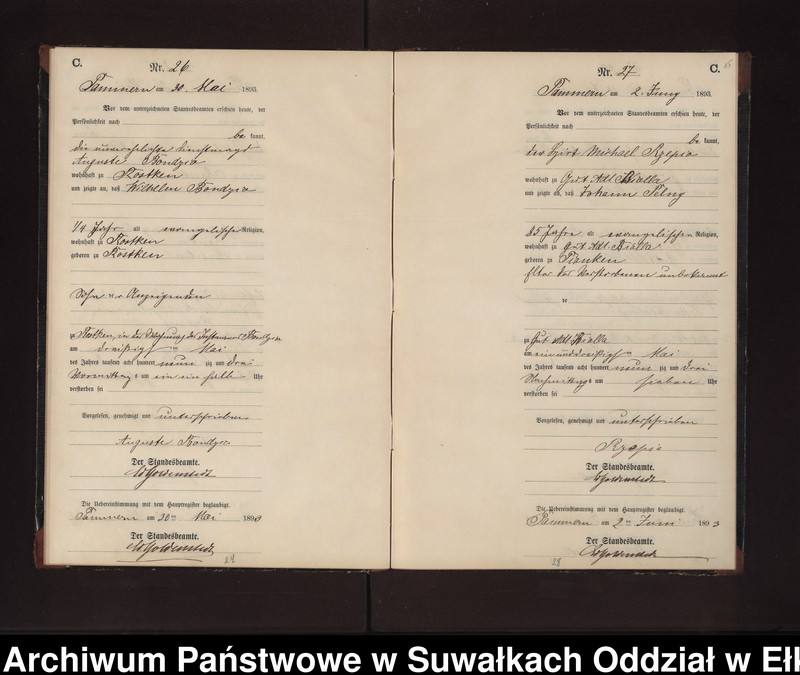 C.
Nr. 26
Tammern am 30. Mai 1893
Vor dem unterzeichneten Standesbeamten erschien heute, der
Persönlichkeit nach
be kannt,
die unverehelichte
Auguste Bondzio
wohnhaft zu Kostken
und zeigte an, daß Wilhelm Bondzio
1/4 Jahr alt evangelischer Religion,
wohnhaft zu Kostken
geboren zu Kostken
Sohn der Anzeigenden
zu Kostken, in der Wohnung des Instmanns Bondzio
am dreißigsten Mai
des Jahres tausend acht hundert neun zig und drei
Vormittags um ein ein halb Uhr
verstorben sei
Vorgelesen, genehmigt und unterschrieben
Auguste Bondzio
Der Standesbeamte.
Die Uebereinstimmung mit dem Hauptregister beglaubigt.
Tammern am 30ten Mai 1893
Der Standesbeamte.
C.
Nr. 27
Tammern am 2. Juny 1893.
Vor dem unterzeichneten Standesbeamten erschien heute, der
Persönlichkeit nach
be kannt,
der Hirt Michael Rzepio
wohnhaft zu Gut Adl. Bialla
und zeigte an, daß Johann
85 Jahre alt evangelischer Religion,
wohnhaft zu Gut Adl. Bialla
geboren zu
Eltern des Verstorbenen unbekannt
zu Gut Adl. Bialla
am ein und dreißigsten Mai
des Jahres tausend acht hundert neun zig und drei
Nachmittags um sieben Uhr
verstorben sei
Vorgelesen, genehmigt und unterschrieben
Rzepio
Der Standesbeamte.
Die Uebereinstimmung mit dem Hauptregister beglaubigt.
Tammern am 2ten Juni 1893
Der Standesbeamte.
Archiwum Państwowe w Suwałkach Oddział w Ełk